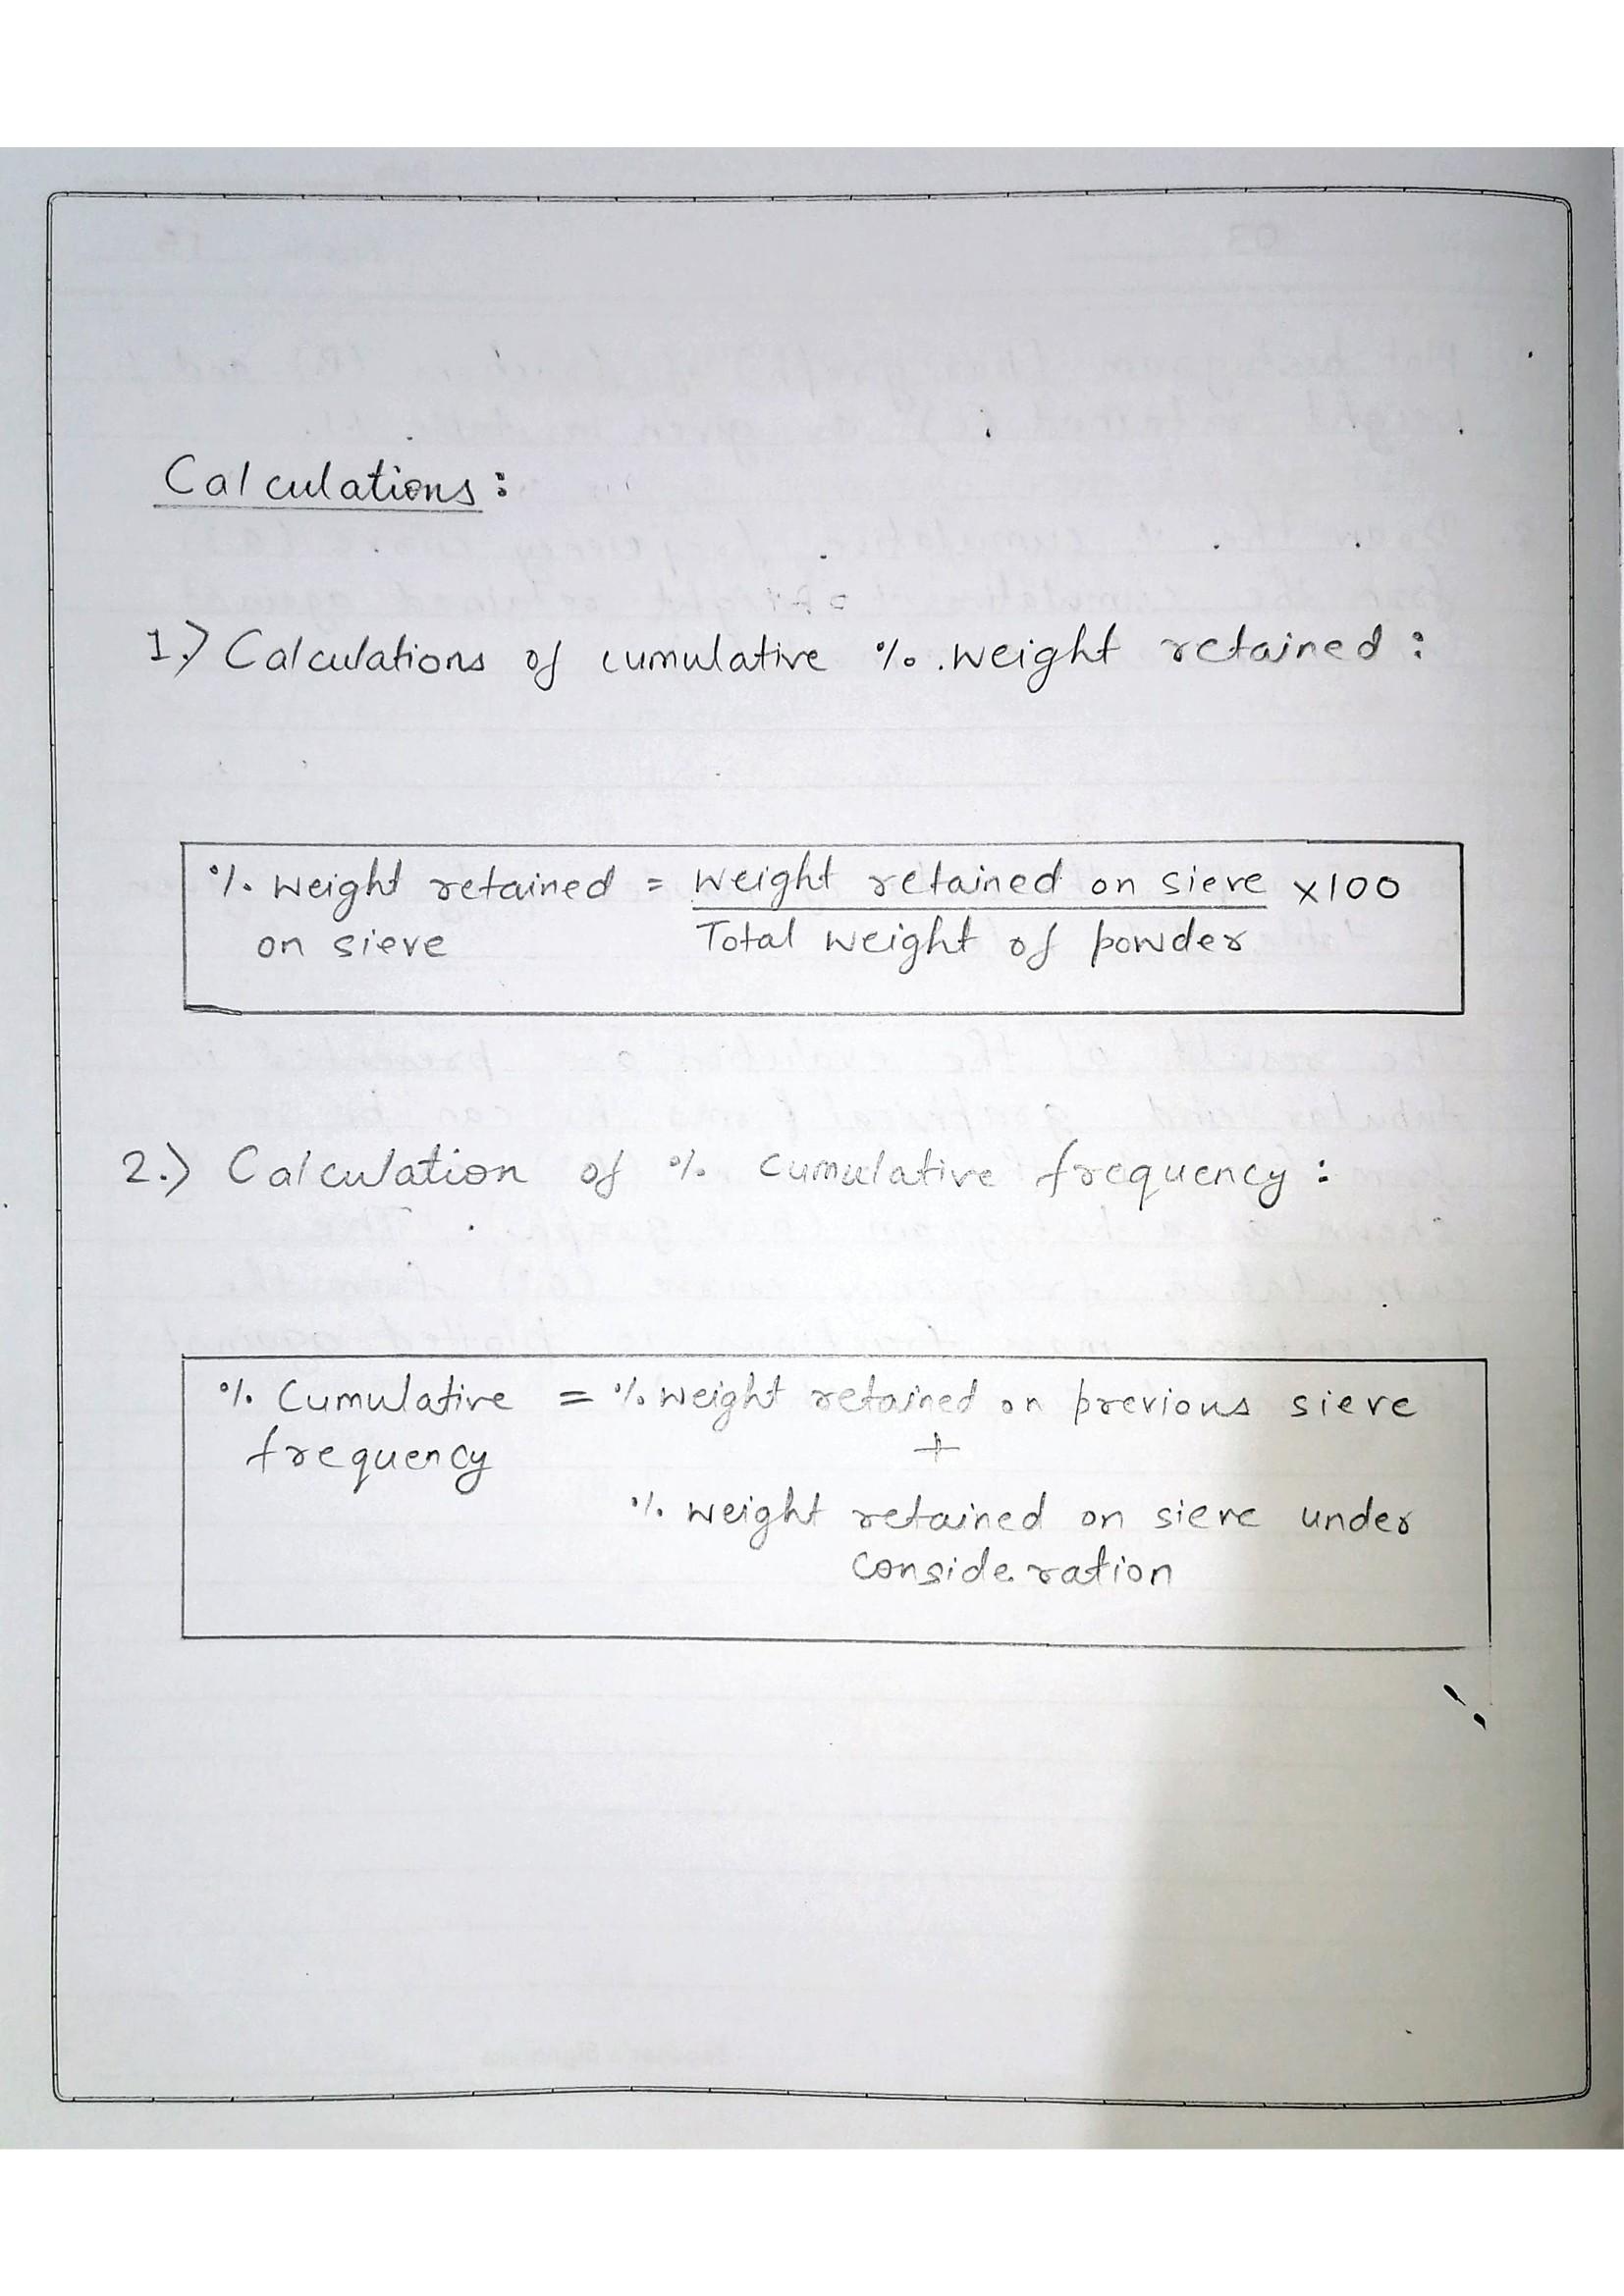 Calculations :
1.) Calculations of cumulative %. weight retained :
% weight retained = weight retained on sieve x100
on sieve Total weight of powder
2.) Calculation of % Cumulative frequency :
% Cumulative = % weight retained on previous sieve
frequency +
% weight retained on sieve under
consideration